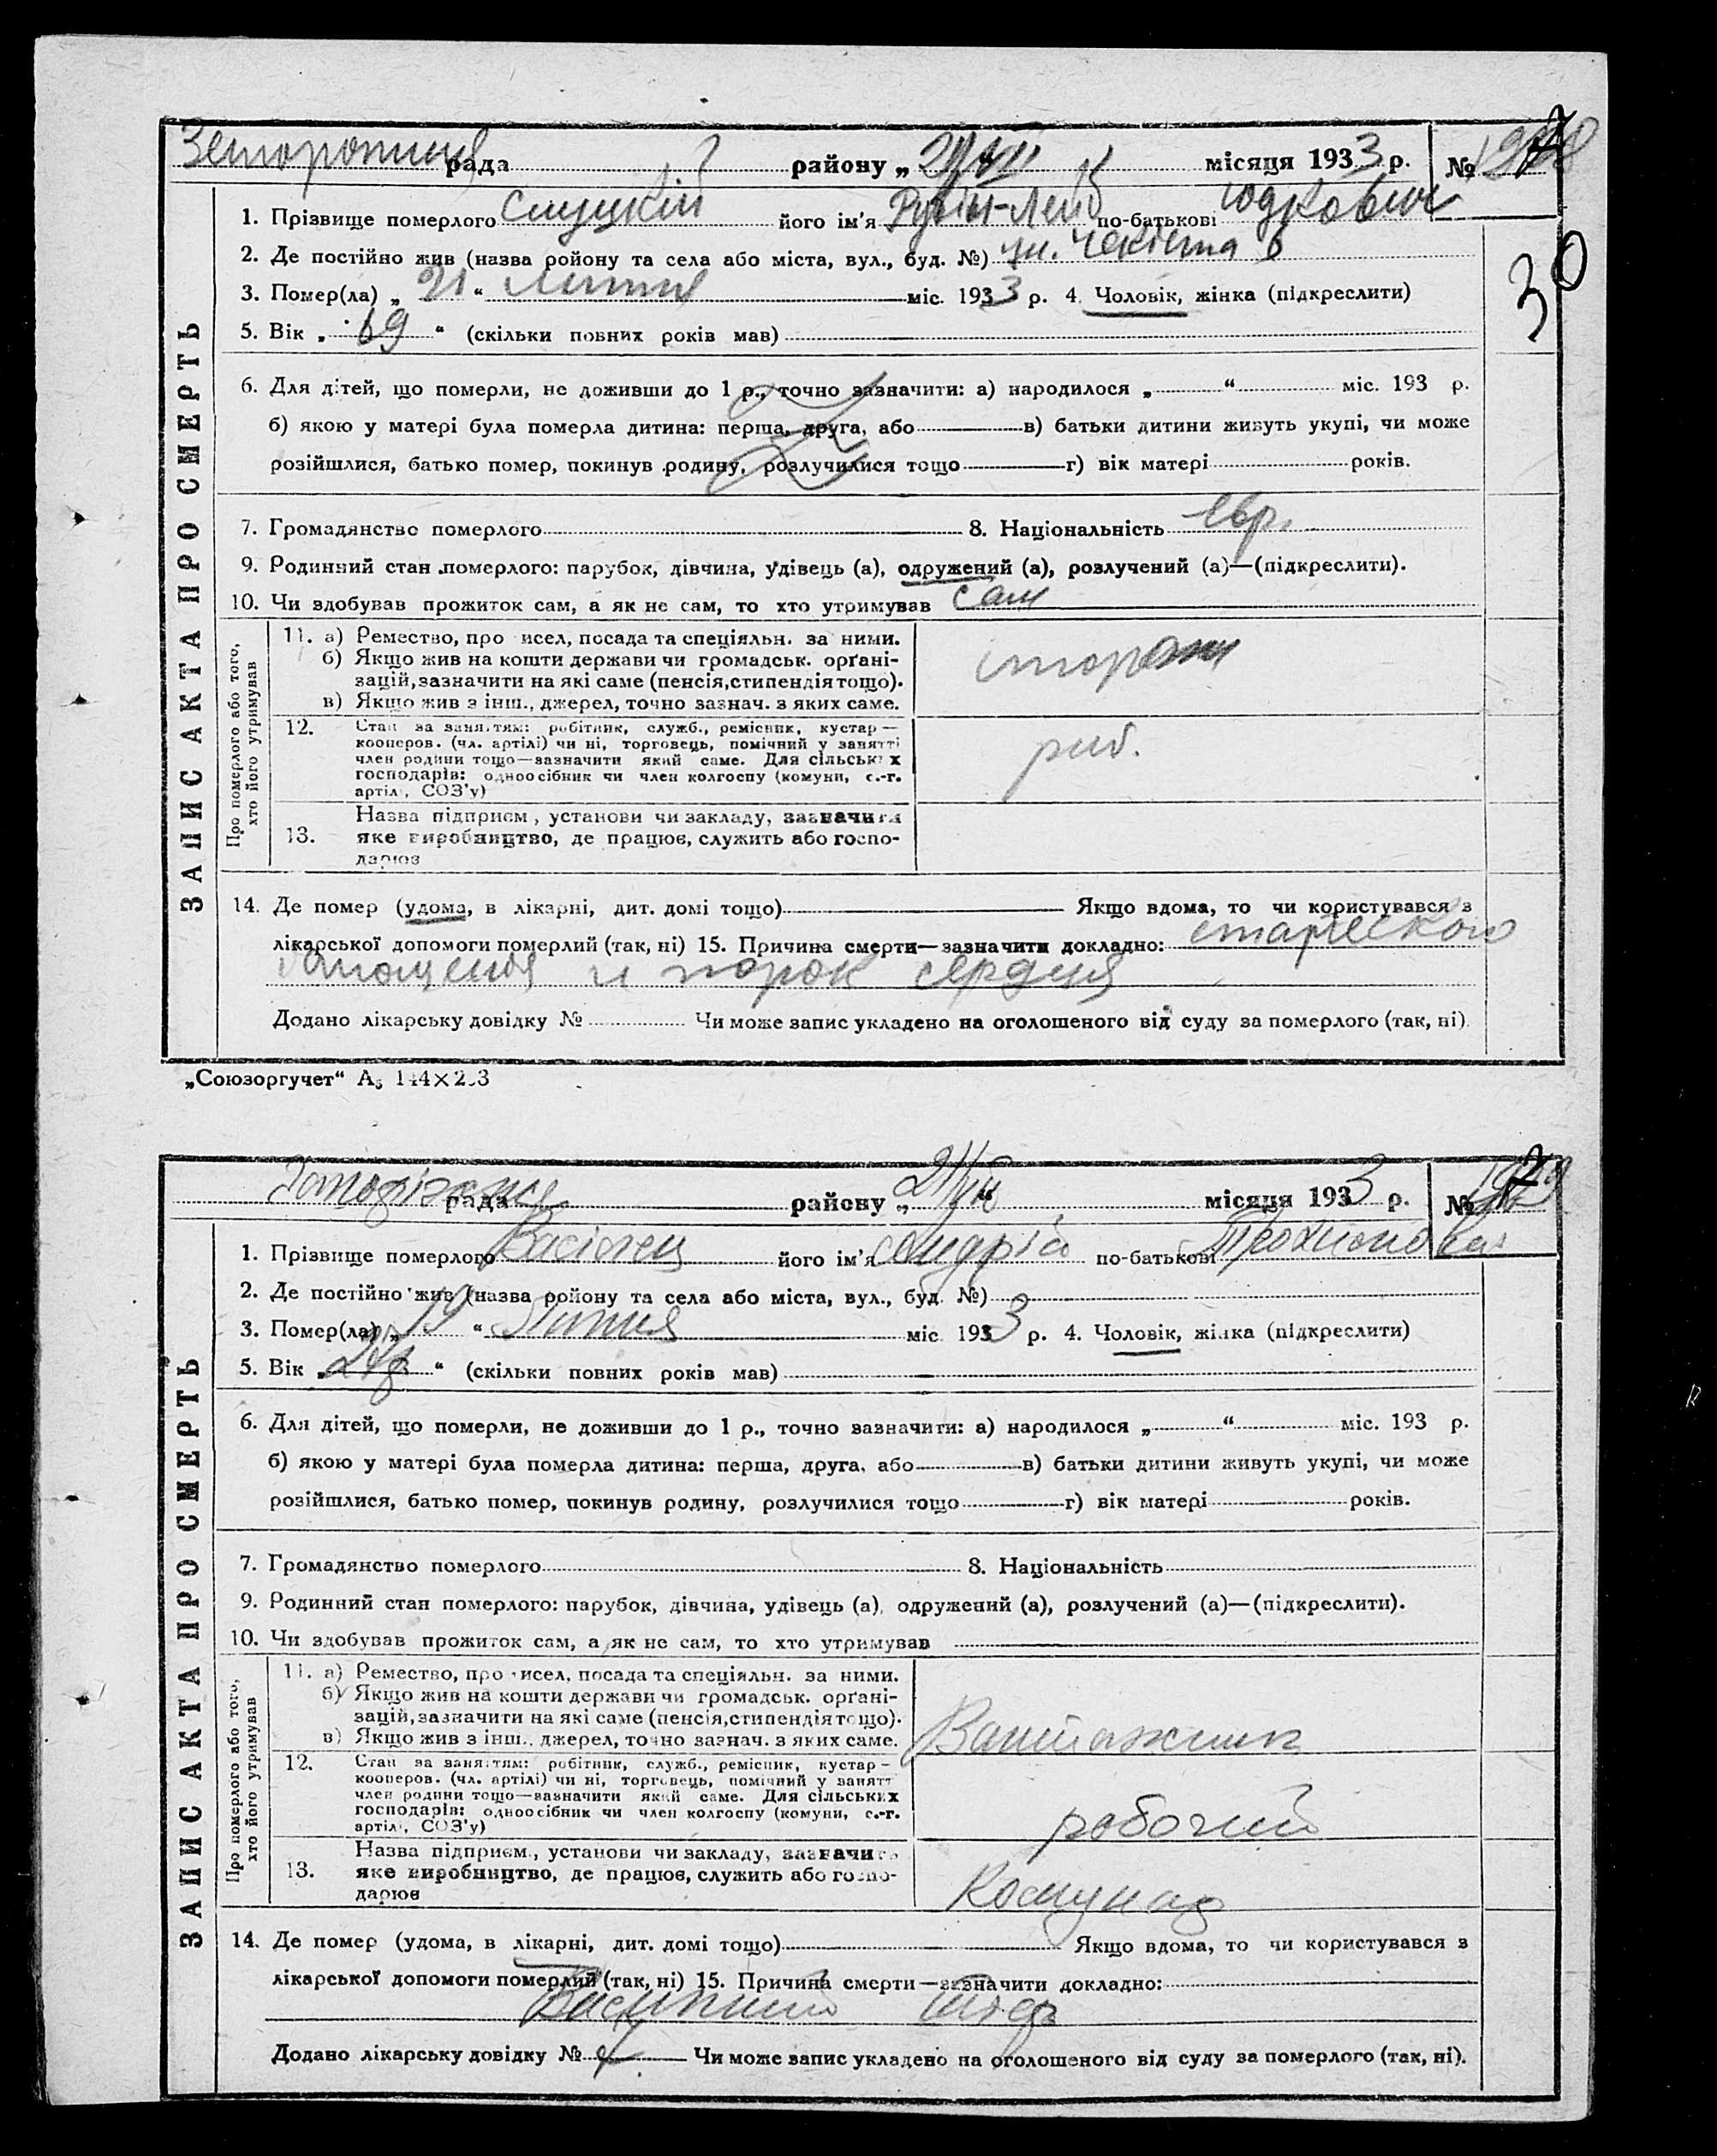 рада району „ 21/VII місяця 1933 р. №
1. Прізвище померлого Слуцкій його ім'я Рувін-Лейб по-батькові Юдкович
2. Де постійно жив (назва ройону та села або міста, вул., буд. №) ул. Чекіста 6
3. Помер(ла) „ 21 “ липня міс. 1933 р. 4. Чоловік, жінка (підкреслити)
30
5. Вік „ 69 “ (скільки повних років мав)
6. Для дітей, що померли, не доживши до 1 р., точно зазначити: а) народилося „ “ міс. 193 р.
б) якою у матері була померла дитина: перша, друга, або в) батьки дитини живуть укупі, чи може
розійшлися, батько помер, покинув родину, розлучилися тощо г) вік матері років.
7. Громадянство померлого 8. Національність Евр.
9. Родинний стан померлого: парубок, дівчина, удівець (а), одружений (а), розлучений (а)—(підкреслити).
10. Чи здобував прожиток сам, а як не сам, то хто утримував сам
ЗАПИС АКТА ПРО СМЕРТЬ
Про померлого або того, хто його утримував
11. а) Ремество, про исел, посада та спеціяльн. за ними.
б) Якщо жив на кошти держави чи громадськ. орґані-
зацій, зазначити на які саме (пенсія, стипендія тощо).
в) Якщо жив з інш., джерел, точно зазнач. з яких саме.
12. Стан за занятям: робітник, служб., ремісник, кустар—
кооперов. (чл. артілі) чи ні, торговець, помічний у занятті
член родини тощо—зазначити який саме. Для сільських
господарів: одноосібник чи член колгоспу (комуни, с.-г.
артілі, СОЗ'у)
роб.
Назва підприєм., установи чи закладу, зазначити
13. яке виробництво, де працює, служить або госпо-
дарює
14. Де помер (удома, в лікарні, дит. домі тощо) Якщо вдома, то чи користувався з
лікарської допомоги померлий (так, ні) 15. Причина смерти—зазначити докладно: старческого
истощения и порок сердця
Додано лікарську довідку № Чи може запис укладено на оголошеного від суду за померлого (так, ні).
„Союзоргучет“ А₅
рада району „ 21/VII “ місяця 1933 р. №
1. Прізвище померлого його ім'я Андрій по-батькові
2. Де постійно жив (назва ройону та села або міста, вул., буд. №)
3. Помер(ла) „ 19 “ Липня міс. 1933 р. 4. Чоловік, жінка (підкреслити)
5. Вік „ “ (скільки повних років мав)
6. Для дітей, що померли, не доживши до 1 р., точно зазначити: а) народилося „ “ міс. 193 р.
б) якою у матері була померла дитина: перша, друга, або в) батьки дитини живуть укупі, чи може
розійшлися, батько помер, покинув родину, розлучилися тощо г) вік матері років.
7. Громадянство померлого 8. Національність
9. Родинний стан померлого: парубок, дівчина, удівець (а), одружений (а), розлучений (а)—(підкреслити).
10. Чи здобував прожиток сам, а як не сам, то хто утримував
ЗАПИС АКТА ПРО СМЕРТЬ
Про померлого або того, хто його утримував
11. а) Ремество, про исел, посада та спеціяльн. за ними.
б) Якщо жив на кошти держави чи громадськ. орґані-
зацій, зазначити на які саме (пенсія, стипендія тощо).
в) Якщо жив з інш., джерел, точно зазнач. з яких саме.
Вантажник
12. Стан за занятям: робітник, служб., ремісник, кустар—
кооперов. (чл. артілі) чи ні, торговець, помічний у занятт
член родини тощо—зазначити який саме. Для сільських
господарів: одноосібник чи член колгоспу (комуни, с.-г.
артілі, СОЗ'у)
робочий
Назва підприєм., установи чи закладу, зазначить
13. яке виробництво, де працює, служить або госпо-
дарює
Комунар
14. Де помер (удома, в лікарні, дит. домі тощо) Якщо вдома, то чи користувався з
лікарської допомоги померлий (так, ні) 15. Причина смерти—зазначити докладно:
Висипний тиф
Додано лікарську довідку № Чи може запис укладено на оголошеного від суду за померлого (так, ні).